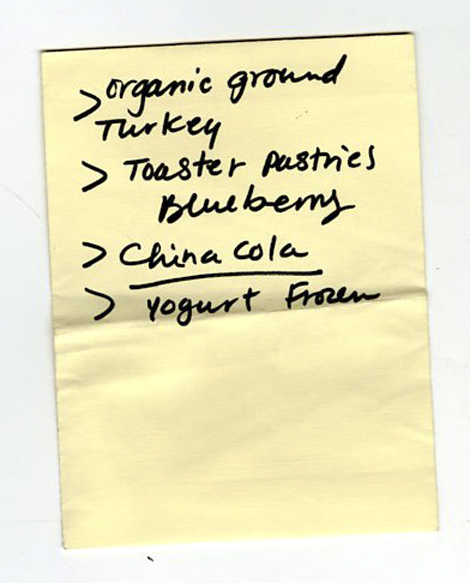 > organic ground
Turkey
> Toaster pastries
Blueberry
> China Cola
> Yogurt Frozen